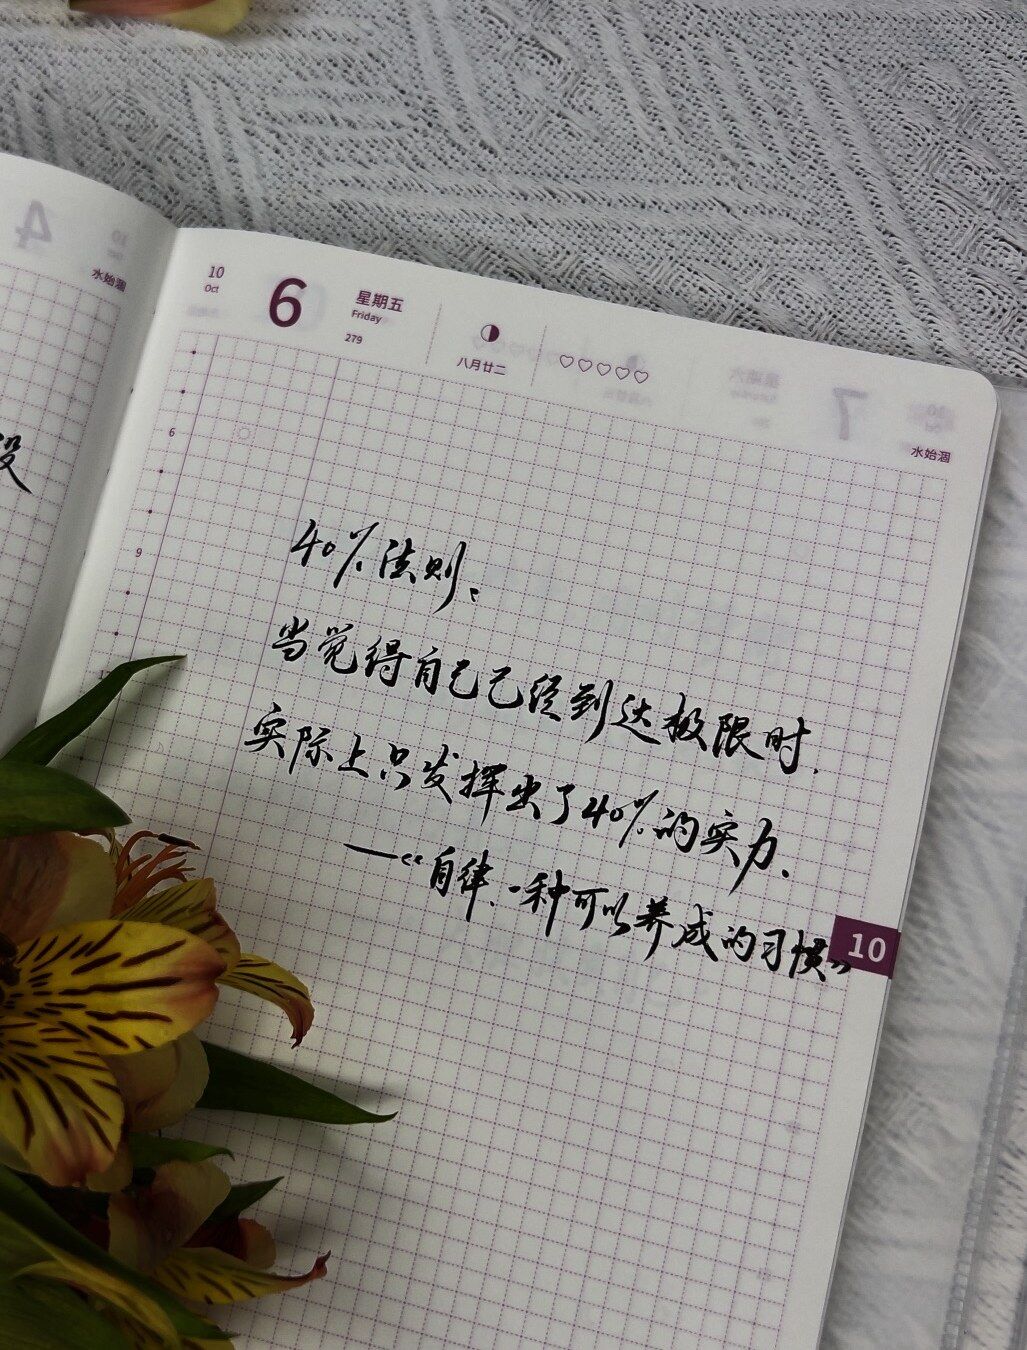 4
水始涸
没
10
Oct
6
星期五
Friday
279
八月廿二
水始涸
6
9
40%法则、
当觉得自己已经到达极限时.
实际上只发挥出了40%的实力、
——《自律、一种可以养成的习惯》
10